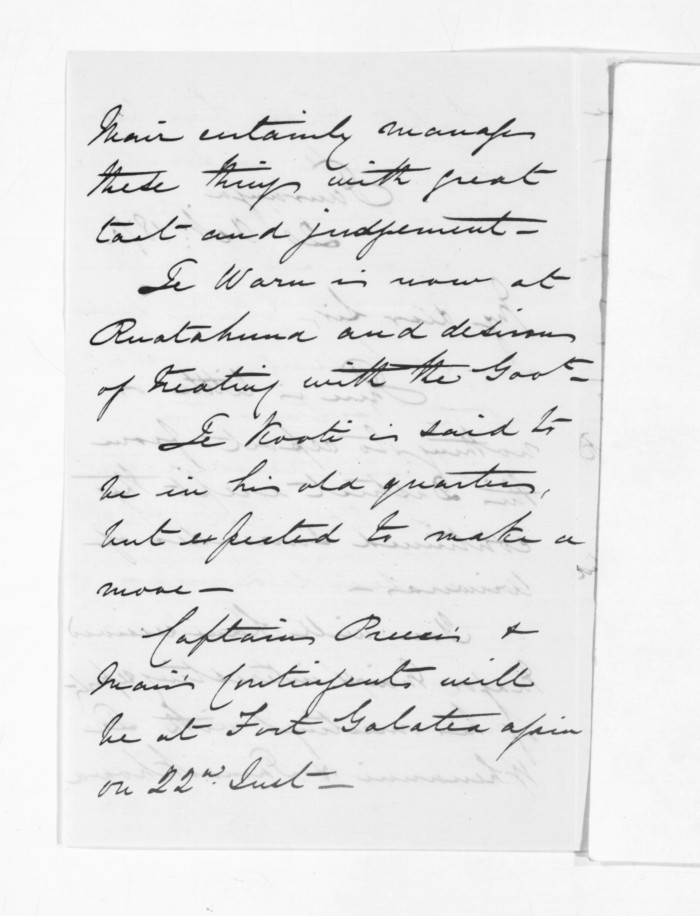 Mair certainly manages
these things with great
tact and judgement –
Te Waru is now at
Ruatahuna and desirous
of treating with the Govt –
Te Kooti is said to
be in his old quarters,
but expected to make a
move –
Captains Preece's &
Mair's Contingents will
be at Fort Galatea again
on 22nd. Inst –